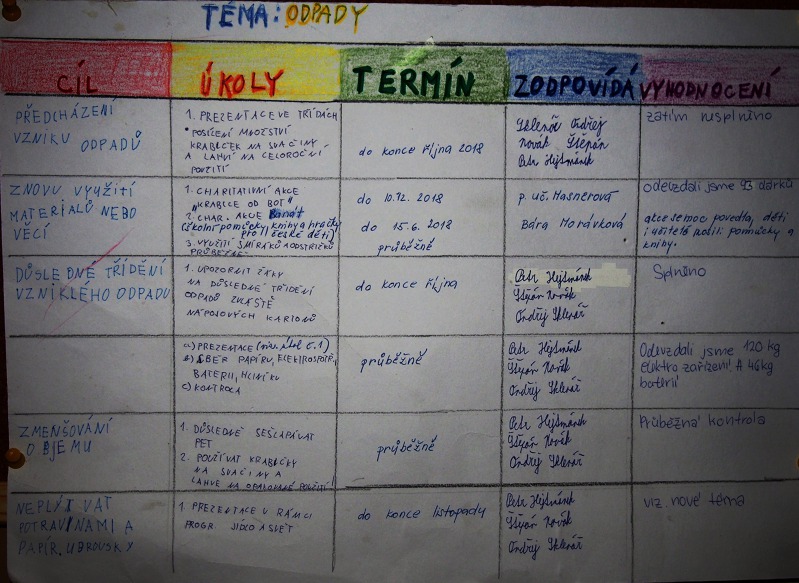 TÉMA: ODPADY
CÍL ÚKOLY TERMÍN ZODPOVÍDÁ VYHODNOCENÍ
PŘEDCHÁZENÍ
VZNIKU ODPADŮ
1. PREZENTACE VE TŘÍDÁCH
• POSÍLENÍ MNOŽSTVÍ
KRABIČEK NA SVAČINY
A LAHVÍ NA CELOROČNÍ
POUŽITÍ
do konce října 2018
Sklenář Ondřej
Novák Štěpán
Petr Hejtmánek
zatím nesplněno
ZNOVU VYUŽITÍ
MATERIÁLŮ NEBO
VĚCÍ
1. CHARITATIVNÍ AKCE
"KRABICE OD BOT"
2. CHAR. AKCE Banát
(školní pomůcky, knihy a hračky
pro české děti)
3. VYUŽITÍ
PRŮBĚŽNĚ
do 10.12. 2018
do 15.6. 2018
průběžně
p. uč. Masnerová
Bára Morávková
odevzdali jsme 93 dárků
akce se moc povedla, děti
i učitelé nosili pomůcky a
knihy.
DŮSLEDNÉ TŘÍDĚNÍ
VZNIKLÉHO ODPADU
1. UPOZORNIT ŽÁKY
NA DŮSLEDNÉ TŘÍDĚNÍ
ODPADŮ ZVLÁŠTĚ
NÁPOJOVÝCH KARTONŮ
do konce října
Petr Hejtmánek
Štěpán Novák
Ondřej Sklenář
Splněno
a) PREZENTACE (viz. úkol č.1)
b) SBĚR PAPÍRU, ELEKTROSPOTŘ,
BATERIÍ, HLINÍKU
c) KONTROLA
průběžně
Petr Hejtmánek
Štěpán Novák
Ondřej Sklenář
Odevzdali jsme 120 kg
elektro zařízení A 46kg
baterií
ZMENŠOVÁNÍ
OBJEMU
1. DŮSLEDNĚ SEŠLAPÁVAT
PET
2. POUŽÍVAT KRABIČKY
NA SVAČINY A
LAHVE NA OPAKOVANÉ POUŽITÍ
průběžně
Petr Hejtmánek
Štěpán Novák
Ondřej Sklenář
Průběžná kontrola
NEPLÝTVAT
POTRAVINAMI A
PAPÍR. UBROUSKY
1. PREZENTACE V RÁMCI
PROGR. JÍDLO A SVĚT
do konce listopadu
Petr Hejtmánek
Štěpán Novák
Ondřej Sklenář
viz. nové téma